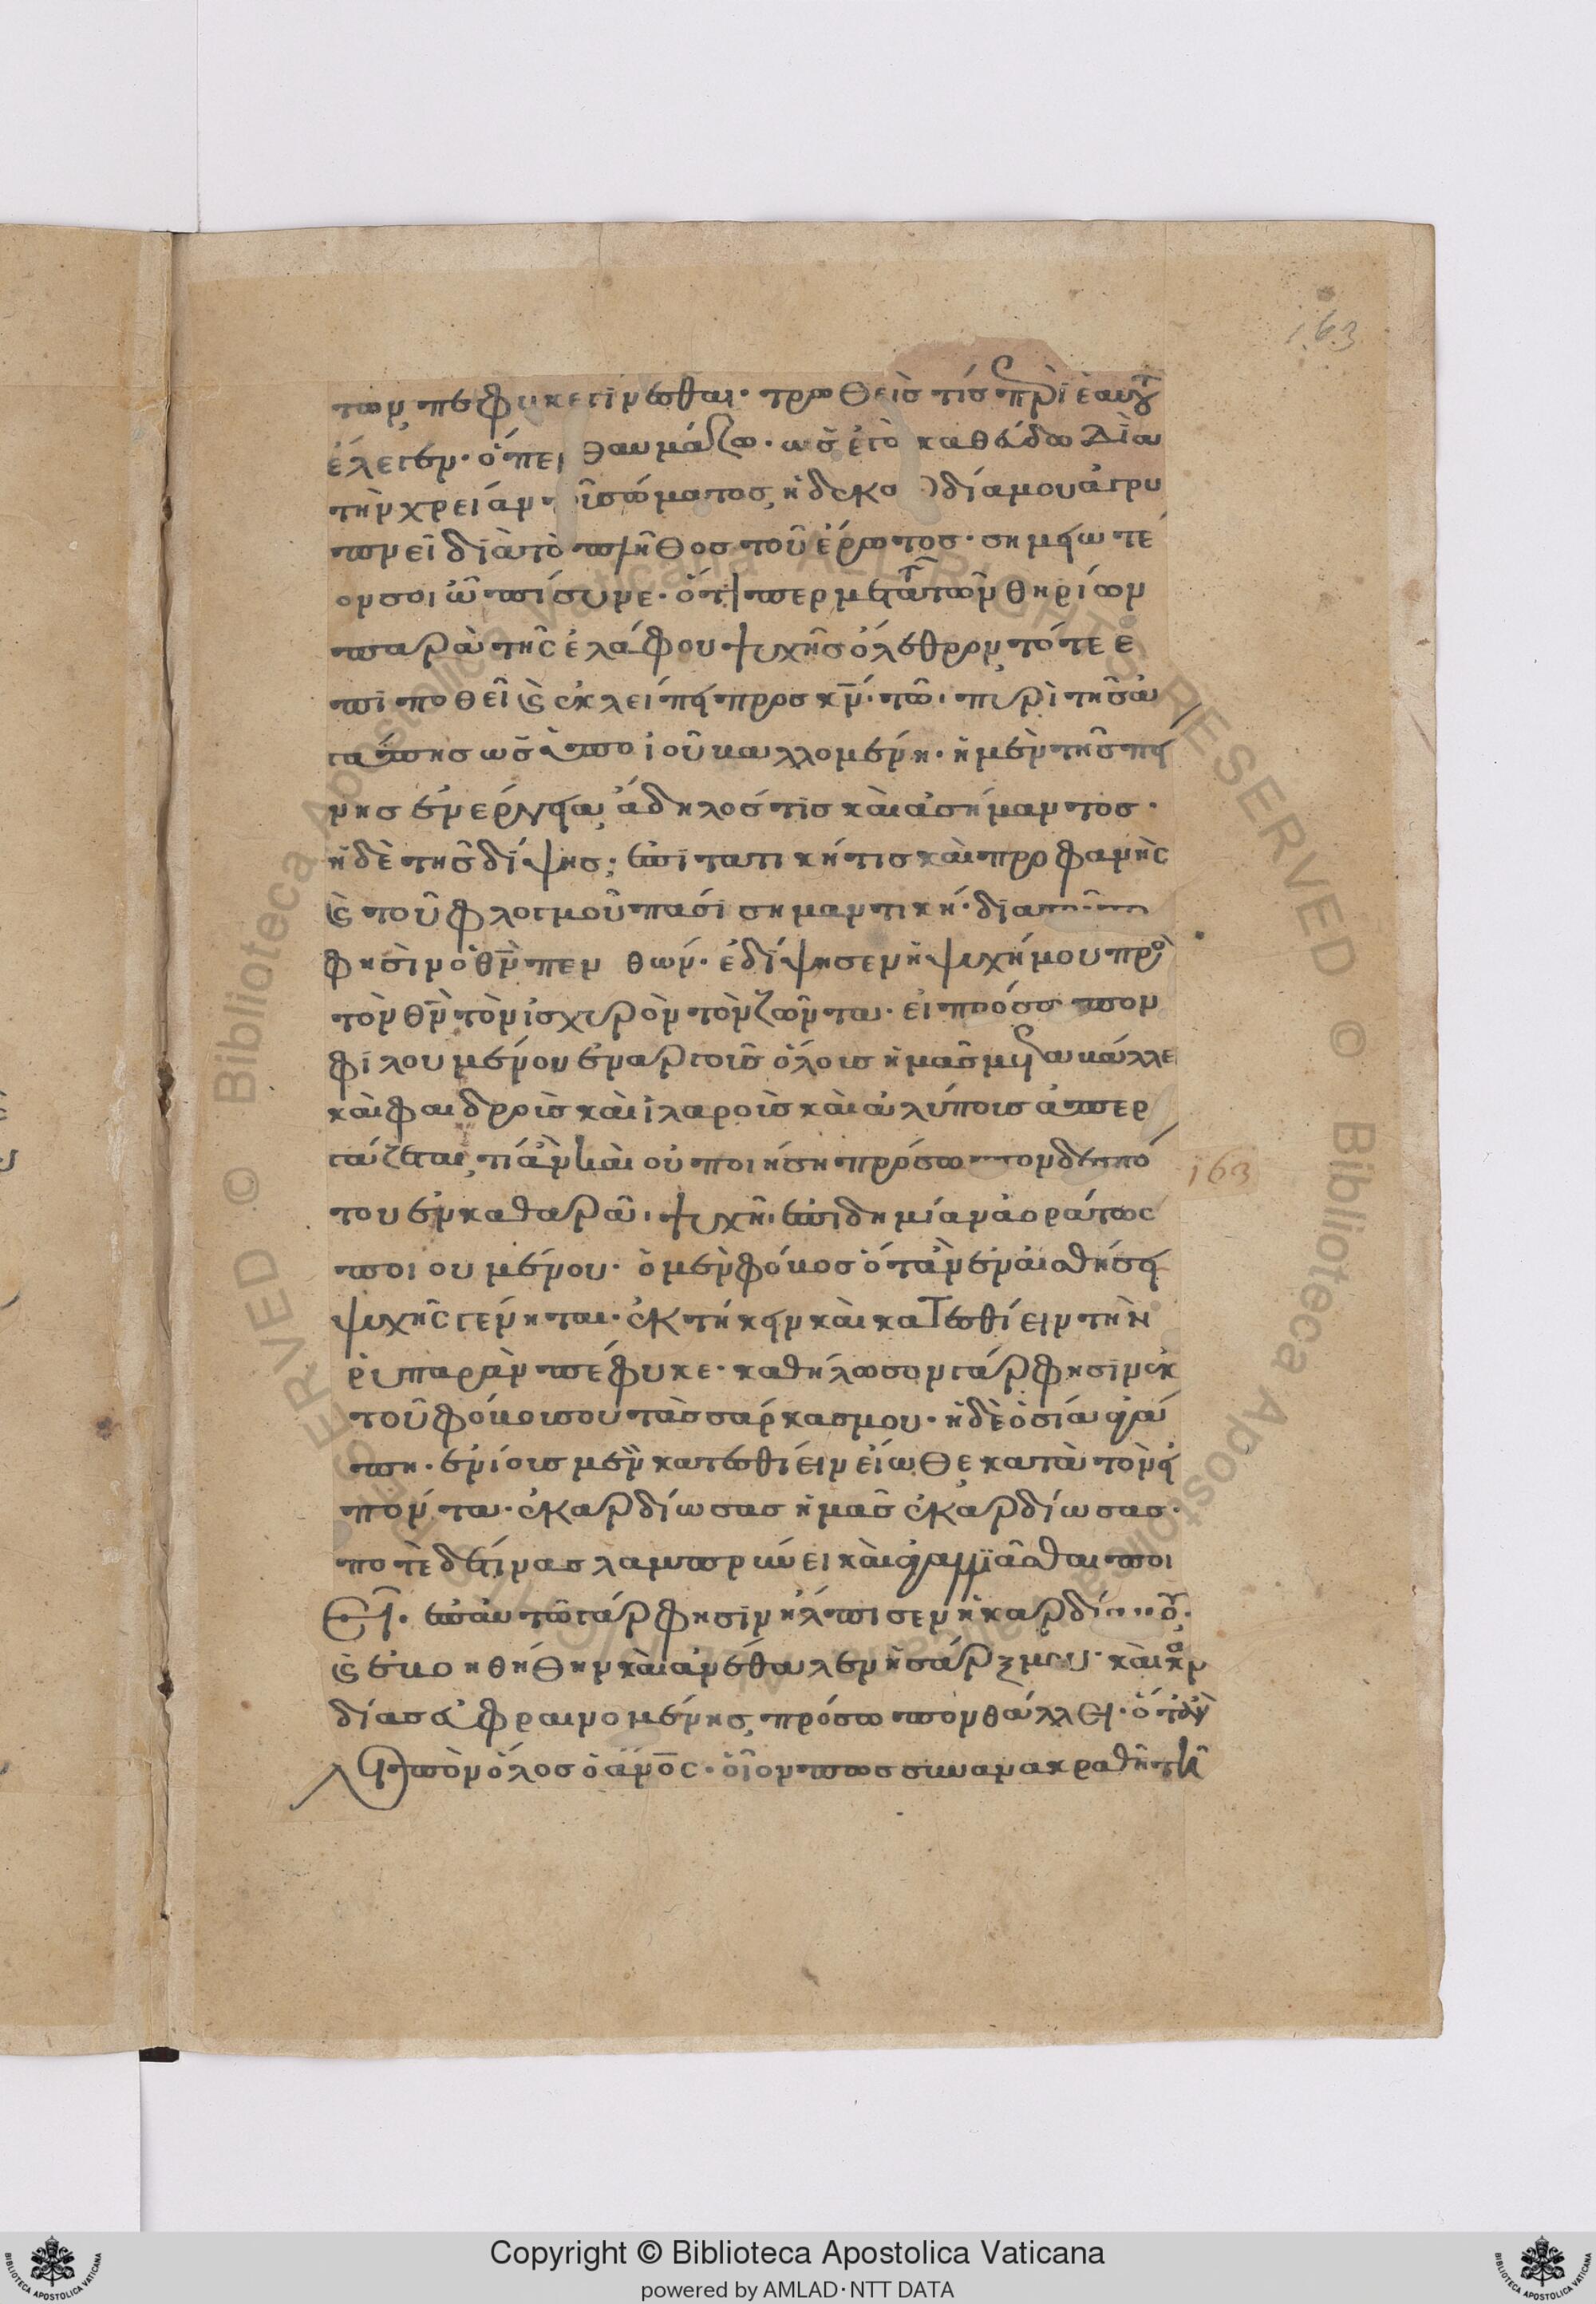 163
των πεφυκε γίνεσθαι· τρωθεὶς τίς περὶ ἑαυτοῦ
ἔλεγεν· ὅπερ θαυμάζω· ὡς ἐγὼ καθεύδω διὰ
τὴν χρείαν τοῦ σώματος, ἡ δὲ κα δία μου ἀγρυ
πνεῖ διὰ τὸ πλῆθος τοῦ ἔρωτος· σημειωτέ
ον σοι ὦ πιστὲ· ὅτι περ μετὰ τῶν θηρίων
παρὰ τῆς ἐλάφου ψυχῆς ὄλεθρον, τότε ἐ
πιποθεῖ καὶ ἐκλείπει προς κν· τῶ πυρὶ τῆς ἀ
γάπης ὡς ἀπὸ ἰοῦ βαλλομένη· ἡ μὲν τῆς πεί
νης ἐνέργεια, ἄδηλός τις καὶ ἀσήμαντος·
ἡ δὲ τῆς δίψης, ἐπιτατική τις καὶ προφανὴς
καὶ τοῦ φλογμοῦ πᾶσι σημαντική· δια
φησὶν ὁ θν πεν θων· ἐδίψησεν ἡ ψυχή μου πρὸς
τὸν θν τὸν ἰσχυρὸν τὸν ζῶντα· εἰ πρόσω πον
φιλουμένου ἐναργῶς ὅλους ἡμᾶς μεταβάλλει
καὶ φαιδροὺς καὶ ἱλαροὺς καὶ ἀλύπους ἀπερ
γάζεται, τί ἂν καὶ οὐ ποιήση πρόσωπον δεσπό
του ἐν καθαρᾶ ψυχῆ ἐπιδημίαν ἀοράτως
ποιουμένου· ὁ μὲν φόβος ὅταν ἐν αἰσθήσει
ψυχῆς γένηται· ἐκτήκειν καὶ κατεσθίειν τὴν
ῥυπαρὰν πέφυκε· καθήλωσον γάρ φησιν ἐκ
τοῦ φόβου σου τὰς σάρκας μου· ἡ δὲ ὁσία ἀγά
πη· ἐνίους μὲν κατεσθίειν εἴωθε κατὰ τὸν εἰ
πόντα· ἐκαρδίωσας ἡμᾶς ἐκαρδίωσας·
ποτὲ δέ τινας λαμπρύνει καὶ ἀγαλλιᾶσθαι ποι
εῖ· ἐπ' αὐτῶ γάρ φησιν ἤλπισεν ἡ καρδία μου·
καὶ ἐβοηθήθην καὶ ἀνέθαλεν ἡ σάρξ μου· καὶ καρ
δίας εὐφραινομένης, πρόσωπον θάλλει· ὅταν
λοιπὸν ὅλος ὁ ανος· οἷόν πως συνανακραθῆ τῆ
163